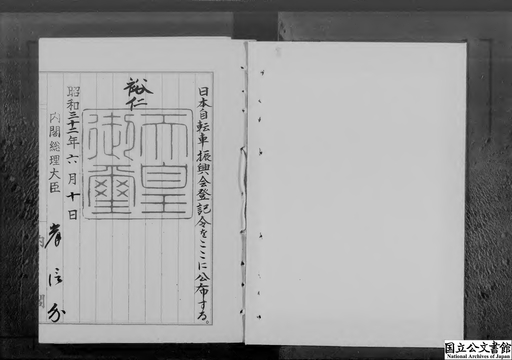 日本自転車振興会登記令をここに公布する。
裕仁
天皇御璽
昭和三十二年六月十日
内閣総理大臣
岸信介
内閣
国立公文書館
National Archives of Japan